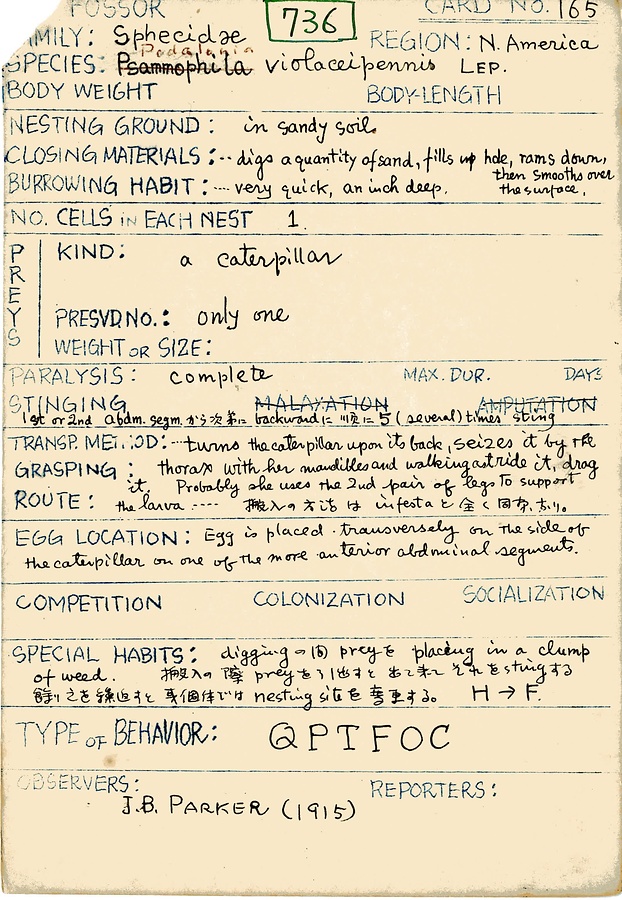 FOSSOR 736 CARD NO. 165
FAMILY: Sphecidae REGION: N. America
Podalonia
SPECIES: Psammophila violaceipennis LEP.
BODY WEIGHT BODY-LENGTH
NESTING GROUND: in sandy soil.
CLOSING MATERIALS: -- digs a quantity of sand, fills up hole, rams down,
then smooths over
BURROWING HABIT: --- very quick, an inch deep. the surface.
NO. CELLS in EACH NEST 1.
PREYS
KIND: a caterpillar
PRESVD. NO.: only one
WEIGHT OR SIZE:
PARALYSIS: complete MAX. DUR. DAYS
STINGING MALAXATION AMPUTATION
1st or 2nd abdm. segm. から次第に backward に 順に 5 (several) times sting
TRANSP. METHOD: -- turns the caterpillar upon its back, seizes it by the
GRASPING: thorax with her mandibles and walking astride it, drag
it. Probably she uses the 2nd pair of legs to support
ROUTE: the larva ---- 搬入の方法は infesta と全く同様なり。
EGG LOCATION: Egg is placed transversely on the side of
the caterpillar on one of the more anterior abdominal segments.
COMPETITION COLONIZATION SOCIALIZATION
SPECIAL HABITS: digging の間 prey を placing in a clump
of weed. 搬入の際 prey を引出すと出て来てそれを sting する
余りこを繰返すと 個体では nesting site を変更する。 H → F.
TYPE OF BEHAVIOR: QPTFOC
OBSERVERS: REPORTERS:
J.B. PARKER (1915)